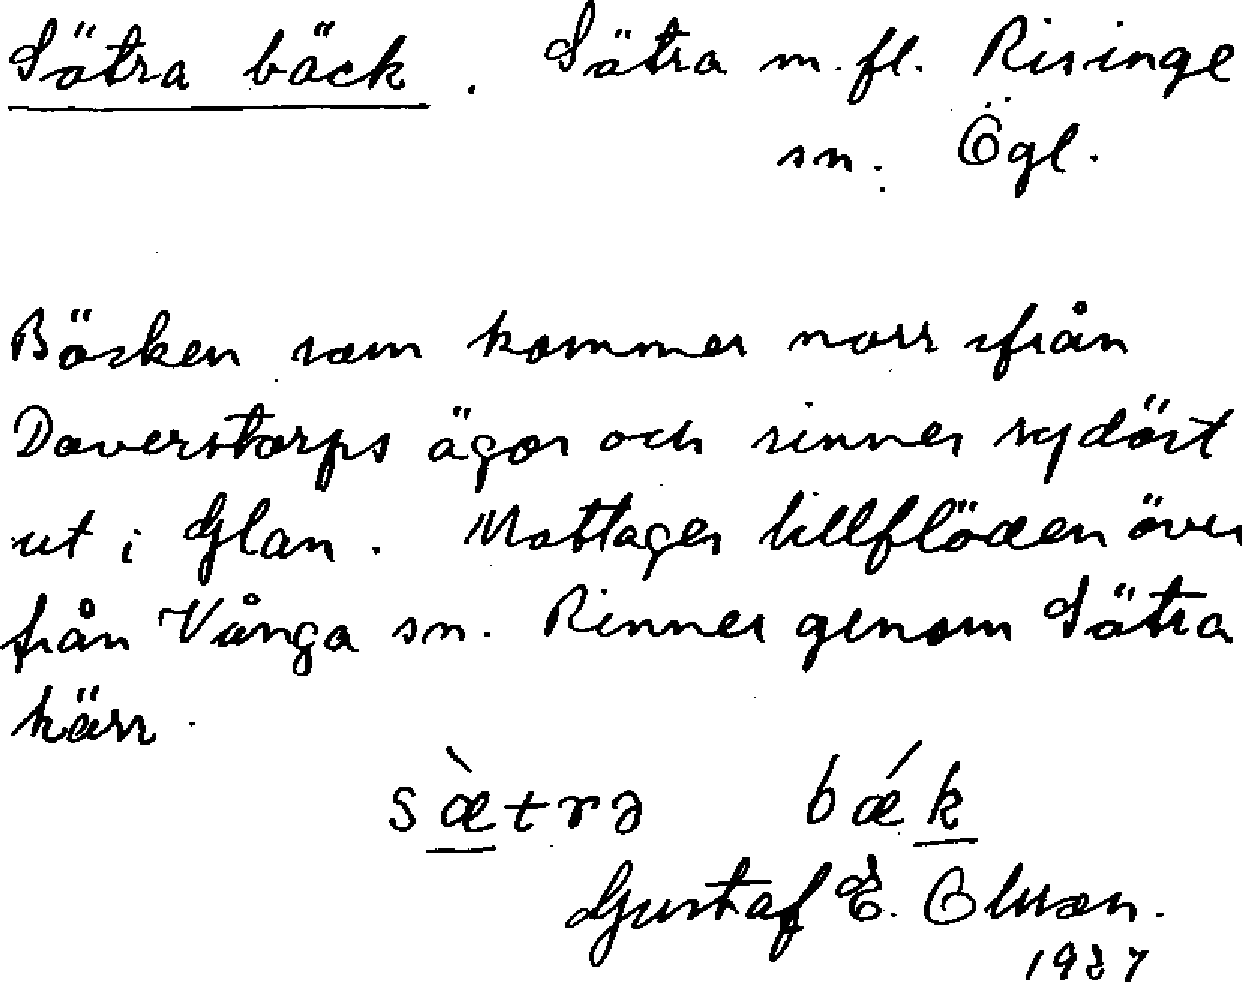 Sätra bäck. Sätra m. fl. Risinge
sn. Ögl.
Bäcken som kommer norr ifrån
Daverstorps ägor och rinner sydöst
ut i Glan. Mottager tillflöden över
från Vånga sn. Rinner genom Sätra
kärr.
sæ̀trə bǽk
Gustaf E. Olsson.
1937